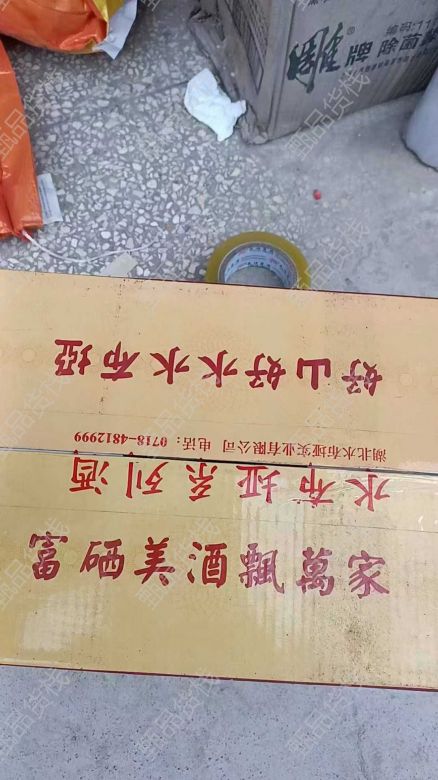 编码:11
雕®牌 除菌
好山好水水布垭
湖北水布垭实业有限公司 电话：0718-4812999
水布垭系列酒
富硒美酒飄萬家
甄品货栈